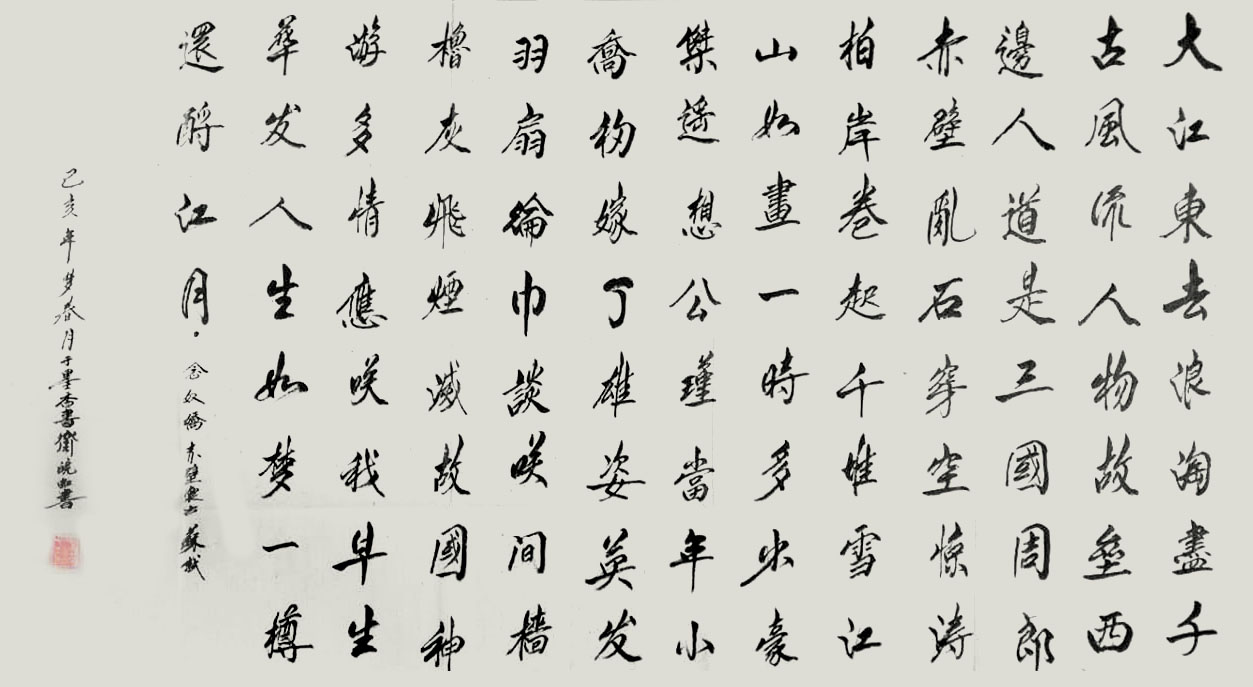 大江東去浪淘盡千
古風流人物故壘西
邊人道是三國周郎
赤壁亂石穿空惊涛
拍岸卷起千堆雪江
山如畫一時多少豪
傑遥想公瑾當年小
喬初嫁了雄姿英发
羽扇綸巾談咲间檣
櫓灰飛煙滅故國神
游多情應咲我早生
華发人生如梦一樽
還酹江月。念奴嬌赤壁懷古蘇軾
己亥年梦春月于墨香書衛晓虹書